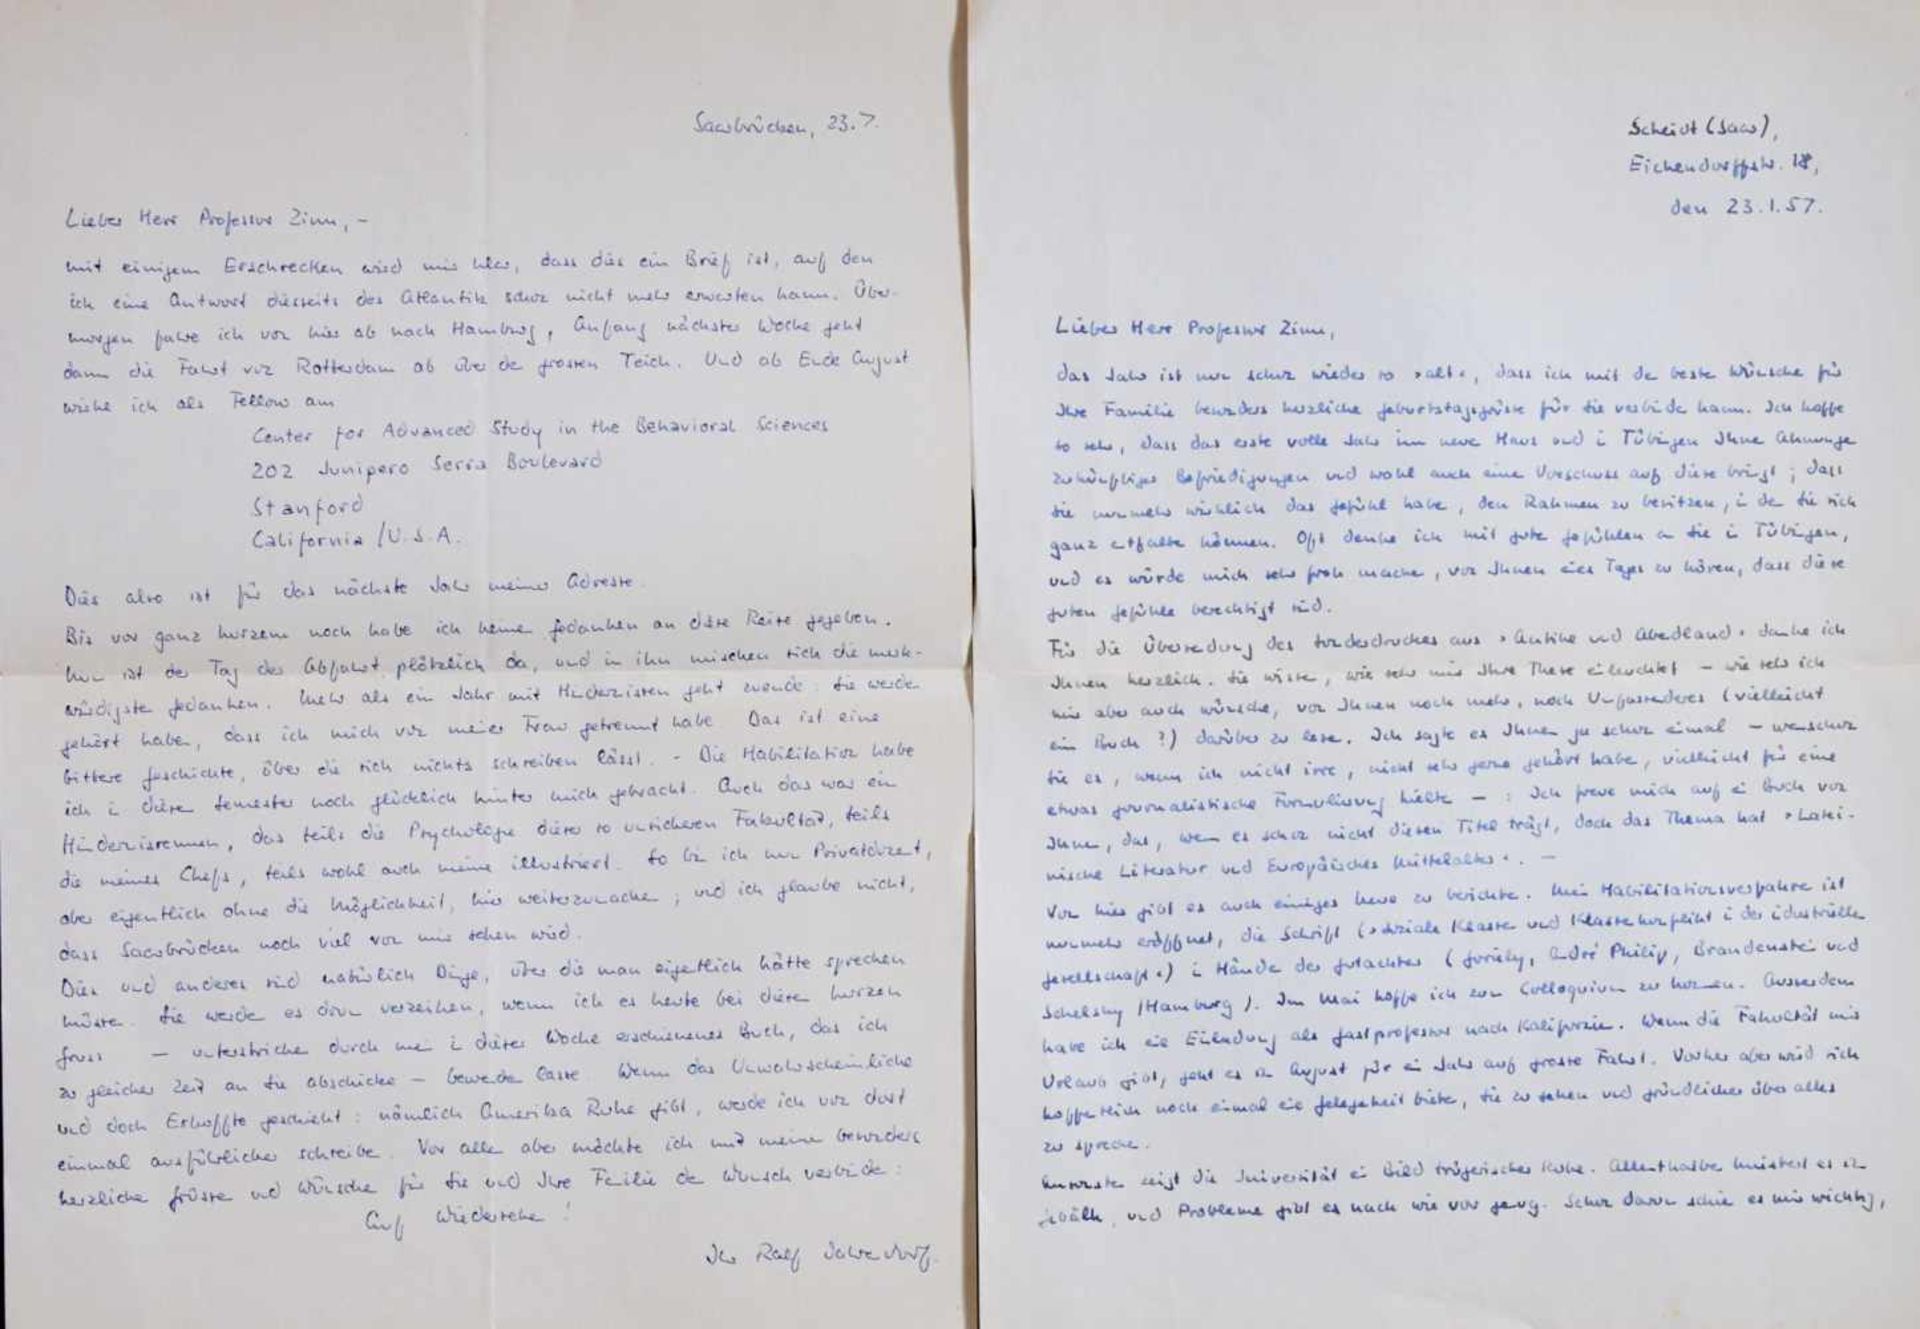 Saarbrücken, 23.7.
Lieber Herr Professor Zinn, –
mit einigem Erschrecken wird mir klar, dass dies ein Brief ist, auf den
ich eine Antwort diesseits des Atlantik schon nicht mehr erwarten kann. Über-
morgen fahre ich von hier ab nach Hamburg, Anfang nächster Woche geht
dann die Fahrt von Rotterdam ab über den grossen Teich. Und ab Ende August
wirke ich als Fellow am
Center for Advanced Study in the Behavioral Sciences
202 Junipero Serra Boulevard
Stanford
California / U.S.A.
Dies also ist für das nächste Jahr meine Adresse.
Bis vor ganz kurzem noch habe ich keine Gedanken an diese Reise gegeben.
Nun ist der Tag der Abfahrt plötzlich da, und in ihn mischen sich die merk-
würdigsten Gedanken. Mehr als ein Jahr mit Hindernissen geht zuende. Sie werden
gehört haben, dass ich mich von meiner Frau getrennt habe. Das ist eine
bittere Geschichte, über die sich nichts schreiben lässt. – Die Habilitation habe
ich in diesem Semester noch glücklich hinter mich gebracht. Auch das war ein
Hindernisrennen, das teils die Psychologie dieser so unsicheren Fakultät, teils
die meines Chefs, teils wohl auch meine illustriert. So bin ich nun Privatdozent,
aber eigentlich ohne die Möglichkeit, hier weiterzumachen; und ich glaube nicht,
dass Saarbrücken noch viel von mir sehen wird.
Dies und anderes sind natürlich Dinge, über die man eigentlich hätte sprechen
müssen. Sie werden es drum verzeihen, wenn ich es heute bei diesem kurzen
Gruss – unterstrichen durch mein in dieser Woche erschienenes Buch, das ich
zu gleicher Zeit an Sie abschicke – bewenden lasse. Wenn das Unwahrscheinliche
und doch Erhoffte geschieht: nämlich Amerika Ruhe gibt, werde ich von dort
einmal ausführlicher schreiben. Vor allem aber möchte ich mit meinen besonders
herzlichen Grüssen und Wünschen für Sie und Ihre Familie den Wunsch verbinden:
Auf Wiedersehen!
Ihr Ralf Dahrendorf.
Scheidt (Saar),
Eichendorffstr. 18,
den 23.1.57.
Lieber Herr Professor Zinn,
das Jahr ist nun schon wieder so »alt«, dass ich mit den besten Wünschen für
Ihre Familie besonders herzliche Geburtstagsgrüsse für Sie verbinden kann. Ich hoffe
so sehr, dass das erste volle Jahr im neuen Haus und in Tübingen Ihnen Ahnungen
zukünftiger Befriedigungen und wohl auch einen Vorschuss auf diese bringt; dass
Sie nunmehr wirklich das Gefühl haben, den Rahmen zu besitzen, in dem Sie sich
ganz entfalten können. Oft denke ich mit guten Gefühlen an Sie in Tübingen,
und es würde mich sehr froh machen, von Ihnen eines Tages zu hören, dass diese
guten Gefühle berechtigt sind.
Für die Übersendung des Sonderdruckes aus »Antike und Abendland« danke ich
Ihnen herzlich. Sie wissen, wie sehr mir Ihre These einleuchtet – wie sehr ich
mir aber auch wünsche, von Ihnen noch mehr, noch Umfassenderes (vielleicht
ein Buch?) darüber zu lesen. Ich sagte es Ihnen ja schon einmal – wenschon
Sie es, wenn ich nicht irre, nicht sehr gerne gehört haben, vielleicht für eine
etwas journalistische Formulierung hielten – : Ich freue mich auf ein Buch von
Ihnen, das, wenn es schon nicht diesen Titel trägt, doch das Thema hat »Latei-
nische Literatur und Europäisches Mittelalter«. –
Von hier gibt es auch einiges Neue zu berichten. Mein Habilitationsverfahren ist
nunmehr eröffnet, die Schrift (»Soziale Klassen und Klassenkonflikt in der industriellen
Gesellschaft«) in Händen der Gutachter (Goriély, André Philip, Brandenstein und
Schelsky / Hamburg). Im Mai hoffe ich zum Colloquium zu kommen. Ausserdem
habe ich eine Einladung als Gastprofessor nach Kalifornien. Wenn die Fakultät mir
Urlaub gibt, geht es im August für ein Jahr auf grosse Fahrt. Vorher aber wird sich
hoffentlich noch einmal eine Gelegenheit bieten, Sie zu sehen und gründlicher über alles
zu sprechen.
Ansonsten zeigt die Universität ein Bild trügerischer Ruhe. Allenthalben knistert es im
Gebälk, und Probleme gibt es nach wie vor genug. Schon darum schien es mir wichtig,